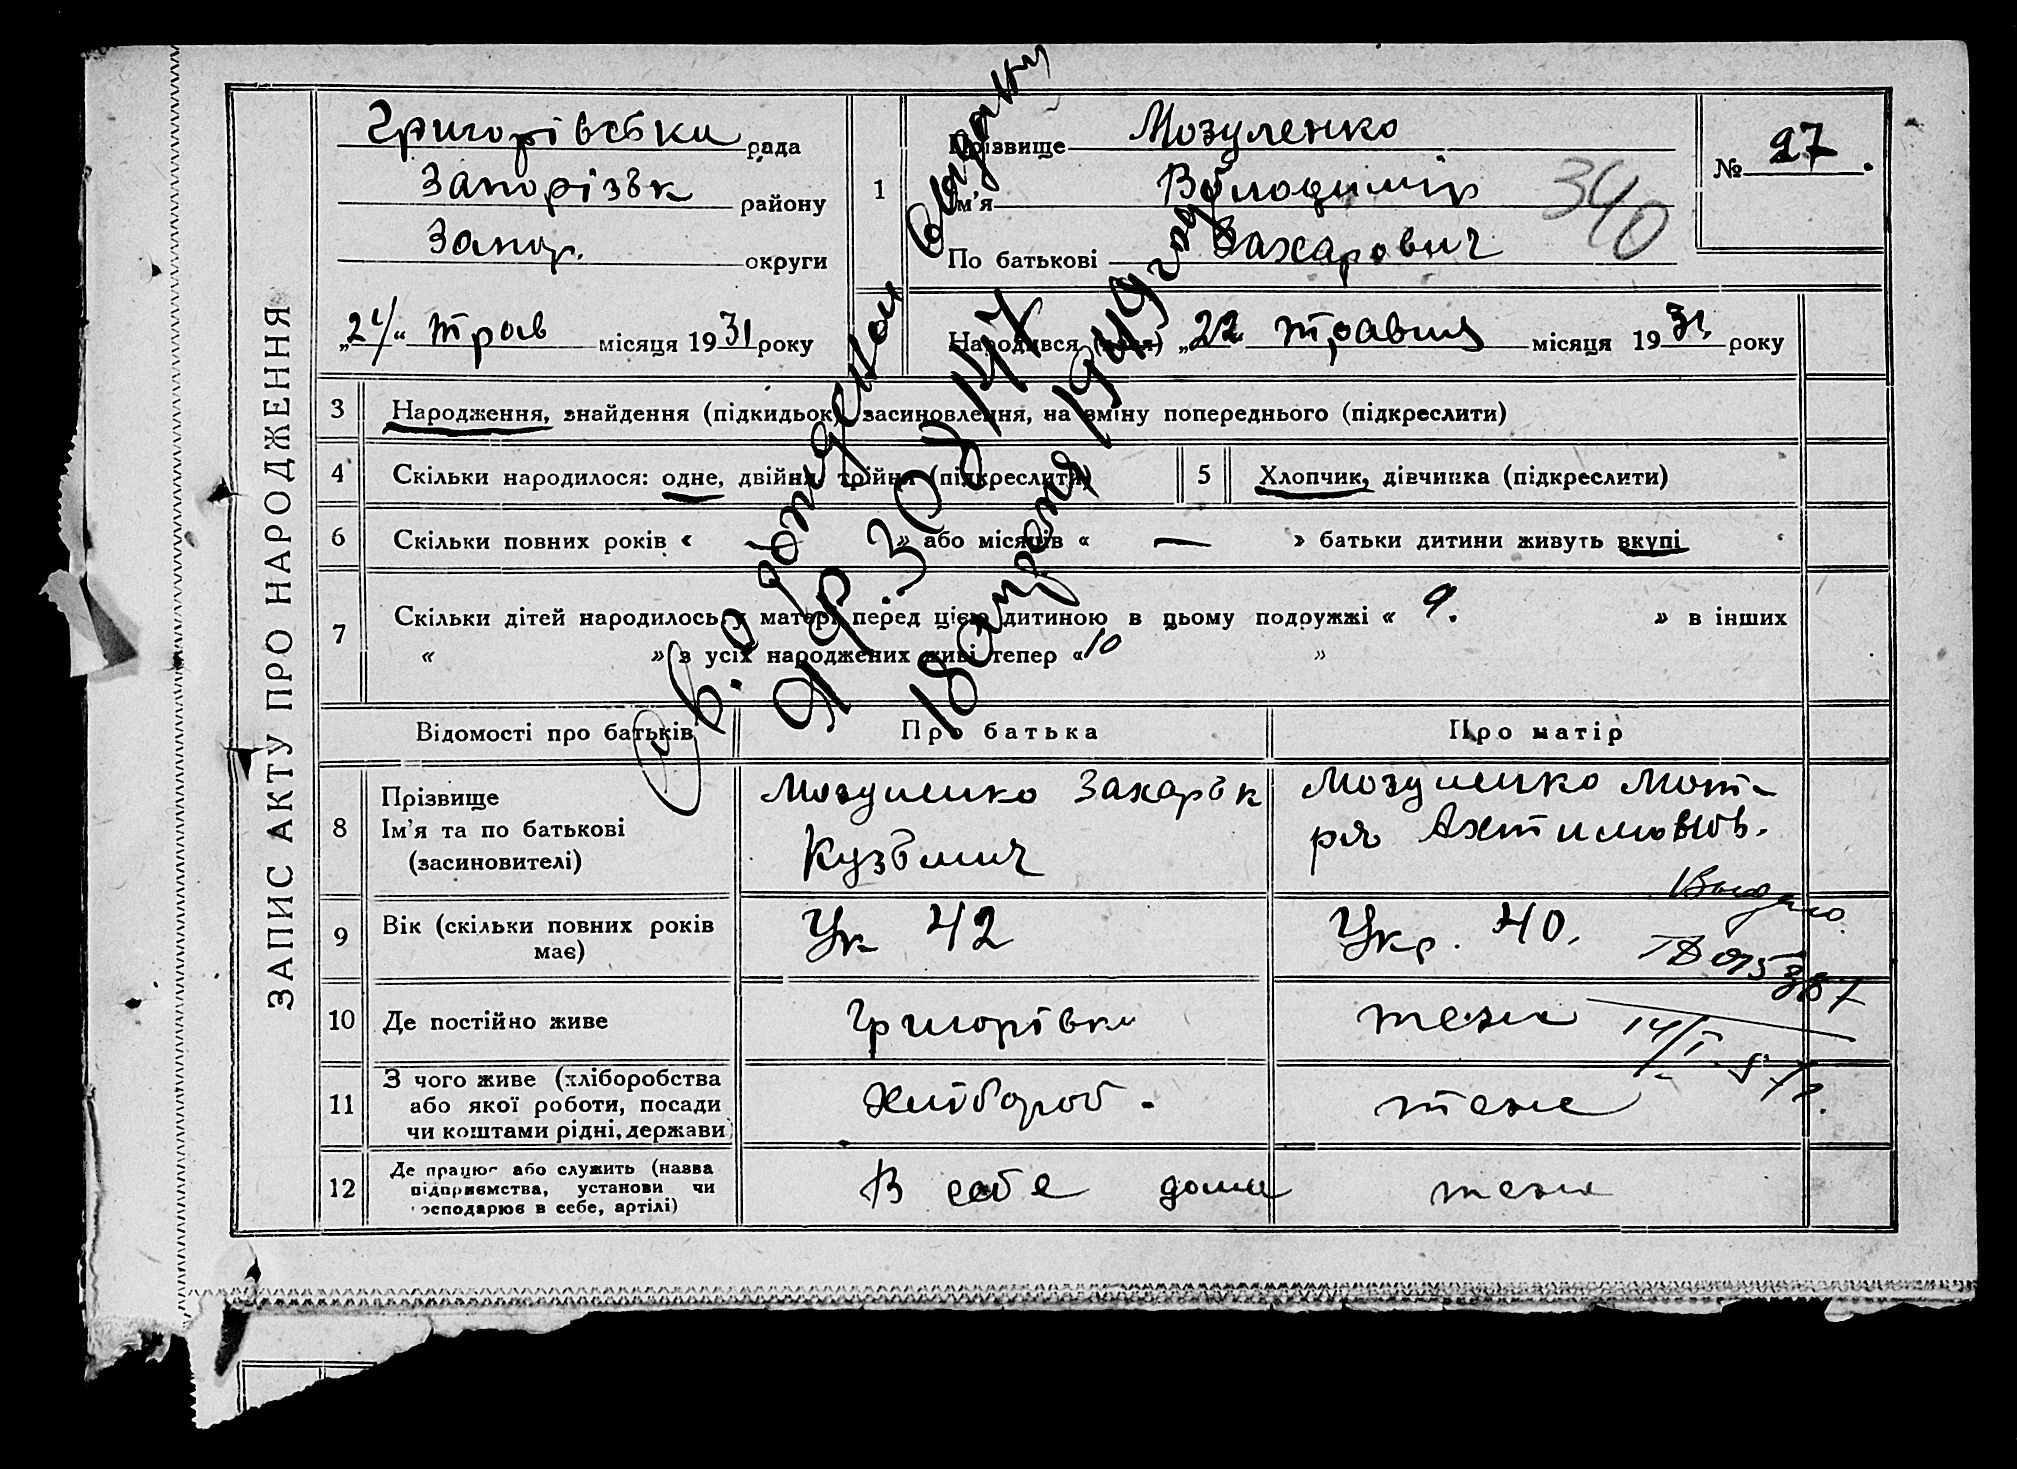 ЗАПИС АКТУ ПРО НАРОДЖЕННЯ
Григорівська рада
Запорізьк району
Запор. округи
„24“ трав місяця 1931 року
1
Прізвище Мозуленко
Ім’я Володимір
По батькові Захарович
№ 27.
340
Народився „22“ травня місяця 1931 року
3 Народження, знайдення (підкидьок), засиновлення, на зміну попереднього (підкреслити)
4 Скільки народилося: одне, двійня, трійня (підкреслити)
5 Хлопчик, дівчинка (підкреслити)
6 Скільки повних років « — » або місяців « — » батьки дитини живуть вкупі
7 Скільки дітей народилось у матері перед цією дитиною в цьому подружжі « 9. » в інших
« » з усіх народжених живі тепер « 10 »
Св. о рождении выдан
18 апреля 1949 года
Відомості про батьків
Про батька
Про матір
8 Прізвище
Ім’я та по батькові
(засиновителі)
Мозуленко Захарьк
Кузьмич
Мозуленко Мот-
ря
9 Вік (скільки повних років
має)
Ук 42
Укр. 40.
Выдано
10 Де постійно живе
Григорівка
теж
14/I-57.
11 З чого живе (хліборобства
або якої роботи, посади
чи коштами рідні, держави)
Хлібороб.
теже
12 Де працює або служить (назва
підприємства, установи чи
господарює в себе, артілі)
В себе дома
теж